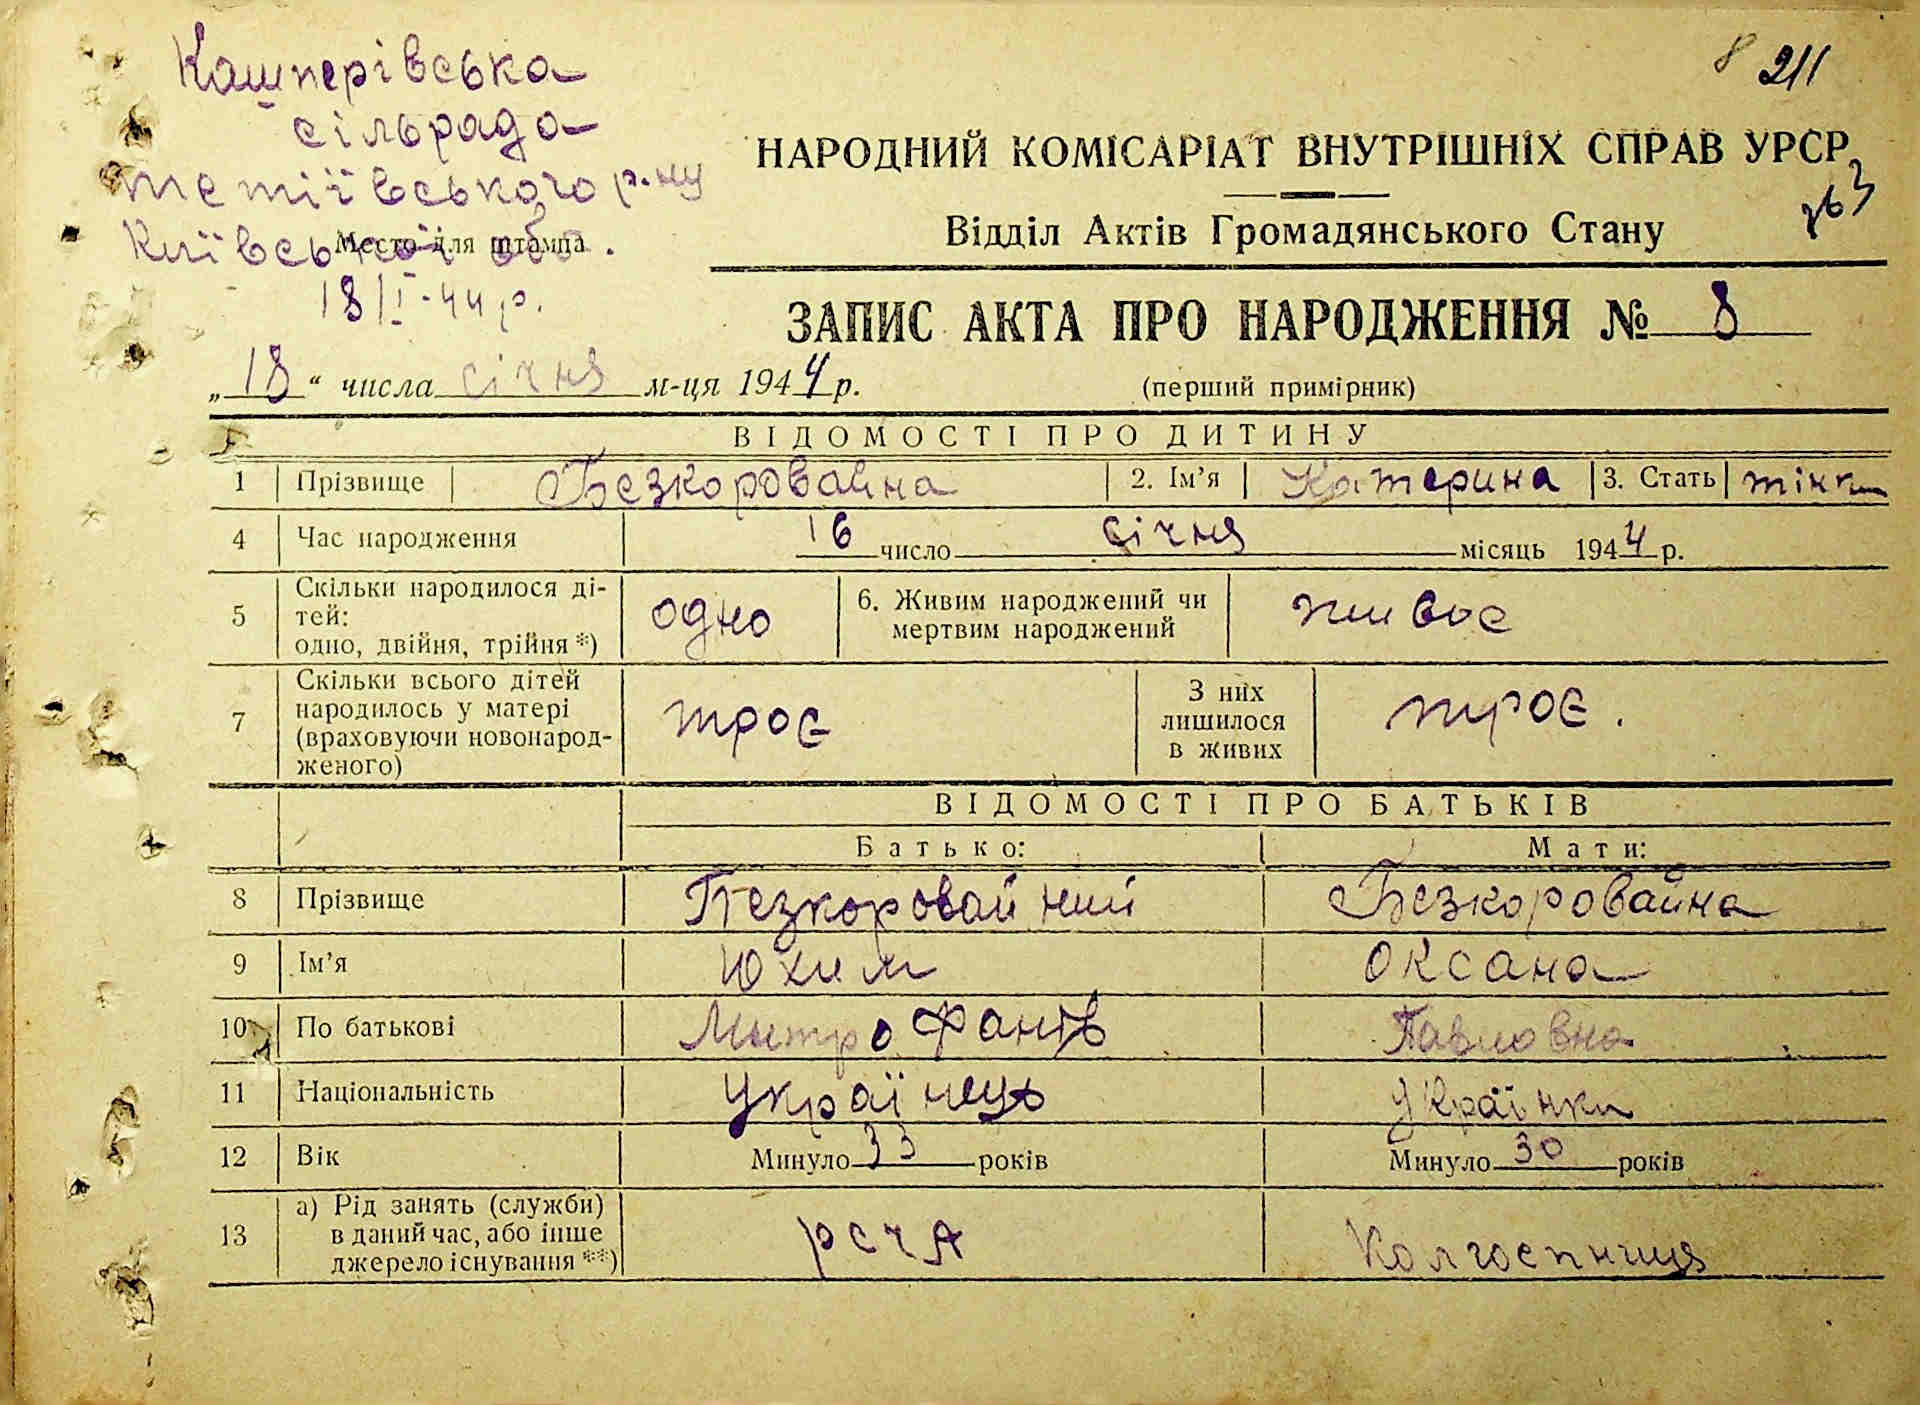 Кашперівська
сільрада
тетіївського р-ну
Київської обл.
Место для штампа
18/I-44 р.
8 211
НАРОДНИЙ КОМІСАРІАТ ВНУТРІШНІХ СПРАВ УРСР
Відділ Актів Громадянського Стану
ЗАПИС АКТА ПРО НАРОДЖЕННЯ № 8
„18“ числа січня м-ця 1944 р.
(перший примірник)
ВІДОМОСТІ ПРО ДИТИНУ
1 Прізвище Безкоровайна 2. Ім’я Катерина 3. Стать
4 Час народження 16 число січня місяць 1944 р.
5 Скільки народилося ді-
тей:
одно, двійня, трійня *) одно
6. Живим народжений чи
мертвим народжений живос
7 Скільки всього дітей
народилось у матері
(враховуючи новонарод-
женого) троє
З них
лишилося
в живих троє.
ВІДОМОСТІ ПРО БАТЬКІВ
Батько: Мати:
8 Прізвище Безкоровайний Безкоровайна
9 Ім’я Юхим Оксана
10 По батькові Митрофанів Павловна
11 Національність Українець Українка
12 Вік Минуло 33 років Минуло 30 років
13 а) Рід занять (служби)
в даний час, або інше
джерело існування **) рсчА Колгоспниця